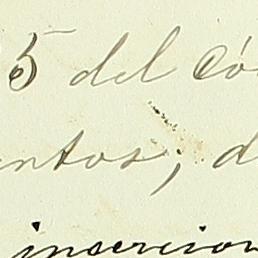 5 del Có
ntos; d
insercion